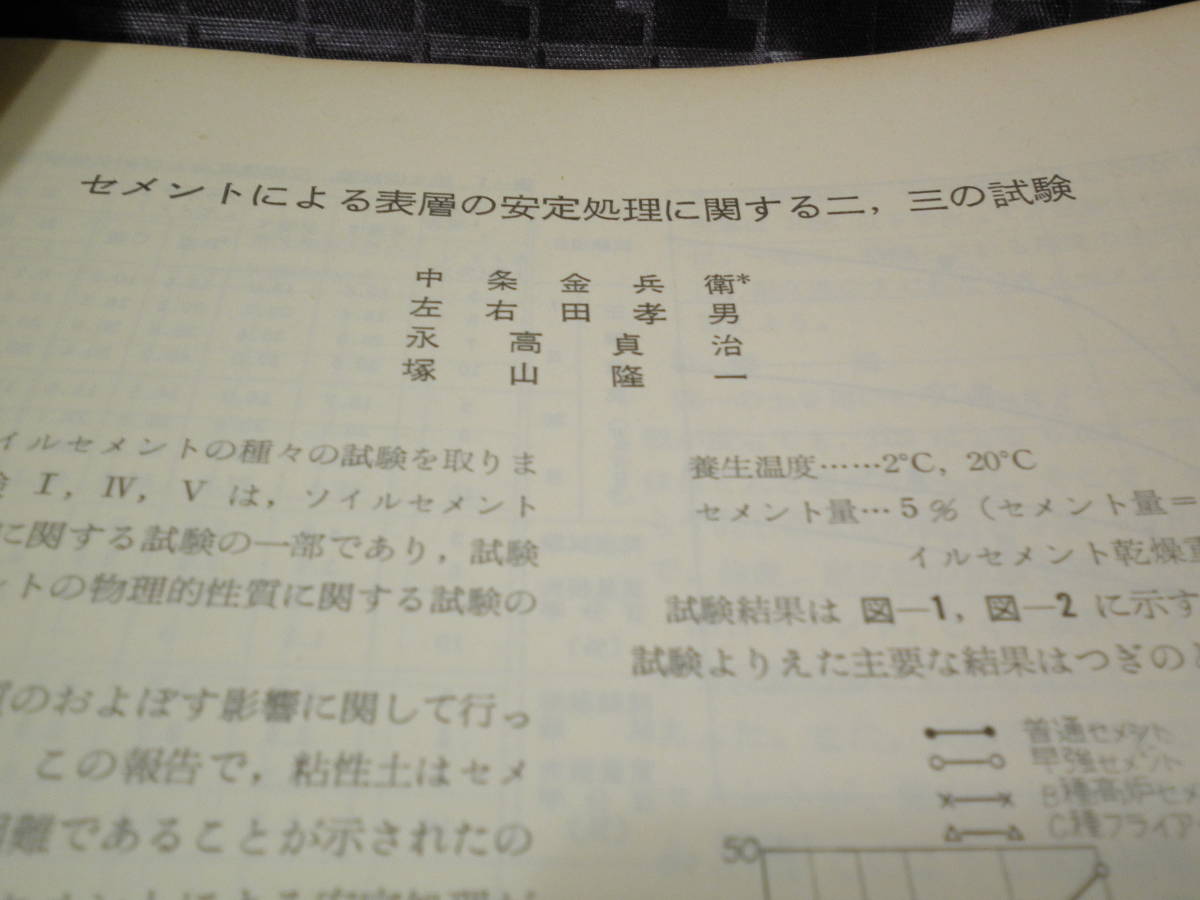 セメントによる表層の安定処理に関する二，三の試験
中条金兵衛*
左右田孝男
永高貞治
塚山隆一
イルセメントの種々の試験を取りま
験 Ⅰ，Ⅳ，Ⅴ は，ソイルセメント
に関する試験の一部であり，試験
ントの物理的性質に関する試験の
質のおよぼす影響に関して行っ
この報告で，粘性土はセメ
困難であることが示されたの
セメントによる安定処理が
養生温度……2°C，20°C
セメント量…5％（セメント量＝
イルセメント乾燥重
試験結果は 図—1，図—2 に示す
試験よりえた主要な結果はつぎのと
普通セメント
早強セメント
B種高炉セメ
C種フライア
50